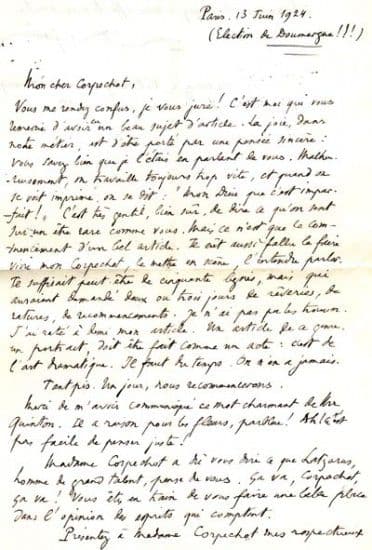 Paris, 13 Juin 1924.
(Election de Doumergue!!!)
Mon cher Corpechot,
Vous me rendez confus, je vous jure! C'est moi qui vous
remercie d'avoir eu un beau sujet d'article. La joie, dans
notre métier, est d'être porté par une pensée sincère:
vous savez bien que je l'étais en parlant de vous. Malheu-
reusement, on travaille toujours trop vite, et quand on
se voit imprimé, on se dit: "Mon Dieu que c'est impar-
fait!" C'est très gentil, bien sûr, de dire ce qu'on sent
sur un être rare comme vous. Mais ce n'est que le com-
mencement d'un tel article. Il eût aussi fallu le faire
vivre mon Corpechot, le mettre en scène, l'entendre parler.
Il suffisait peut être de cinquante lignes, mais qui
auraient demandé deux ou trois jours de rêveries, de
ratures, de recommencements. Je n'ai pas
J'ai raté à demi mon article. Un article de ce genre,
un portrait, doit être fait comme un acte: c'est de
l'art dramatique. Il faut du temps. On n'en a jamais.
Tant pis. Un jour, nous recommencerons.
Merci de m'avoir communiqué ce mot charmant de
Quinton. Il a raison pour les fleurs, parbleu! Ah! c'est
pas facile de penser juste!
Madame Corpechot a dû vous dire ce que Latzarus,
homme de grand talent, pense de vous. Ça va, Corpechot,
ça va! Vous êtes en train de vous faire une belle place
dans l'opinion des esprits qui comptent.
Présentez à Madame Corpechot mes respectueux